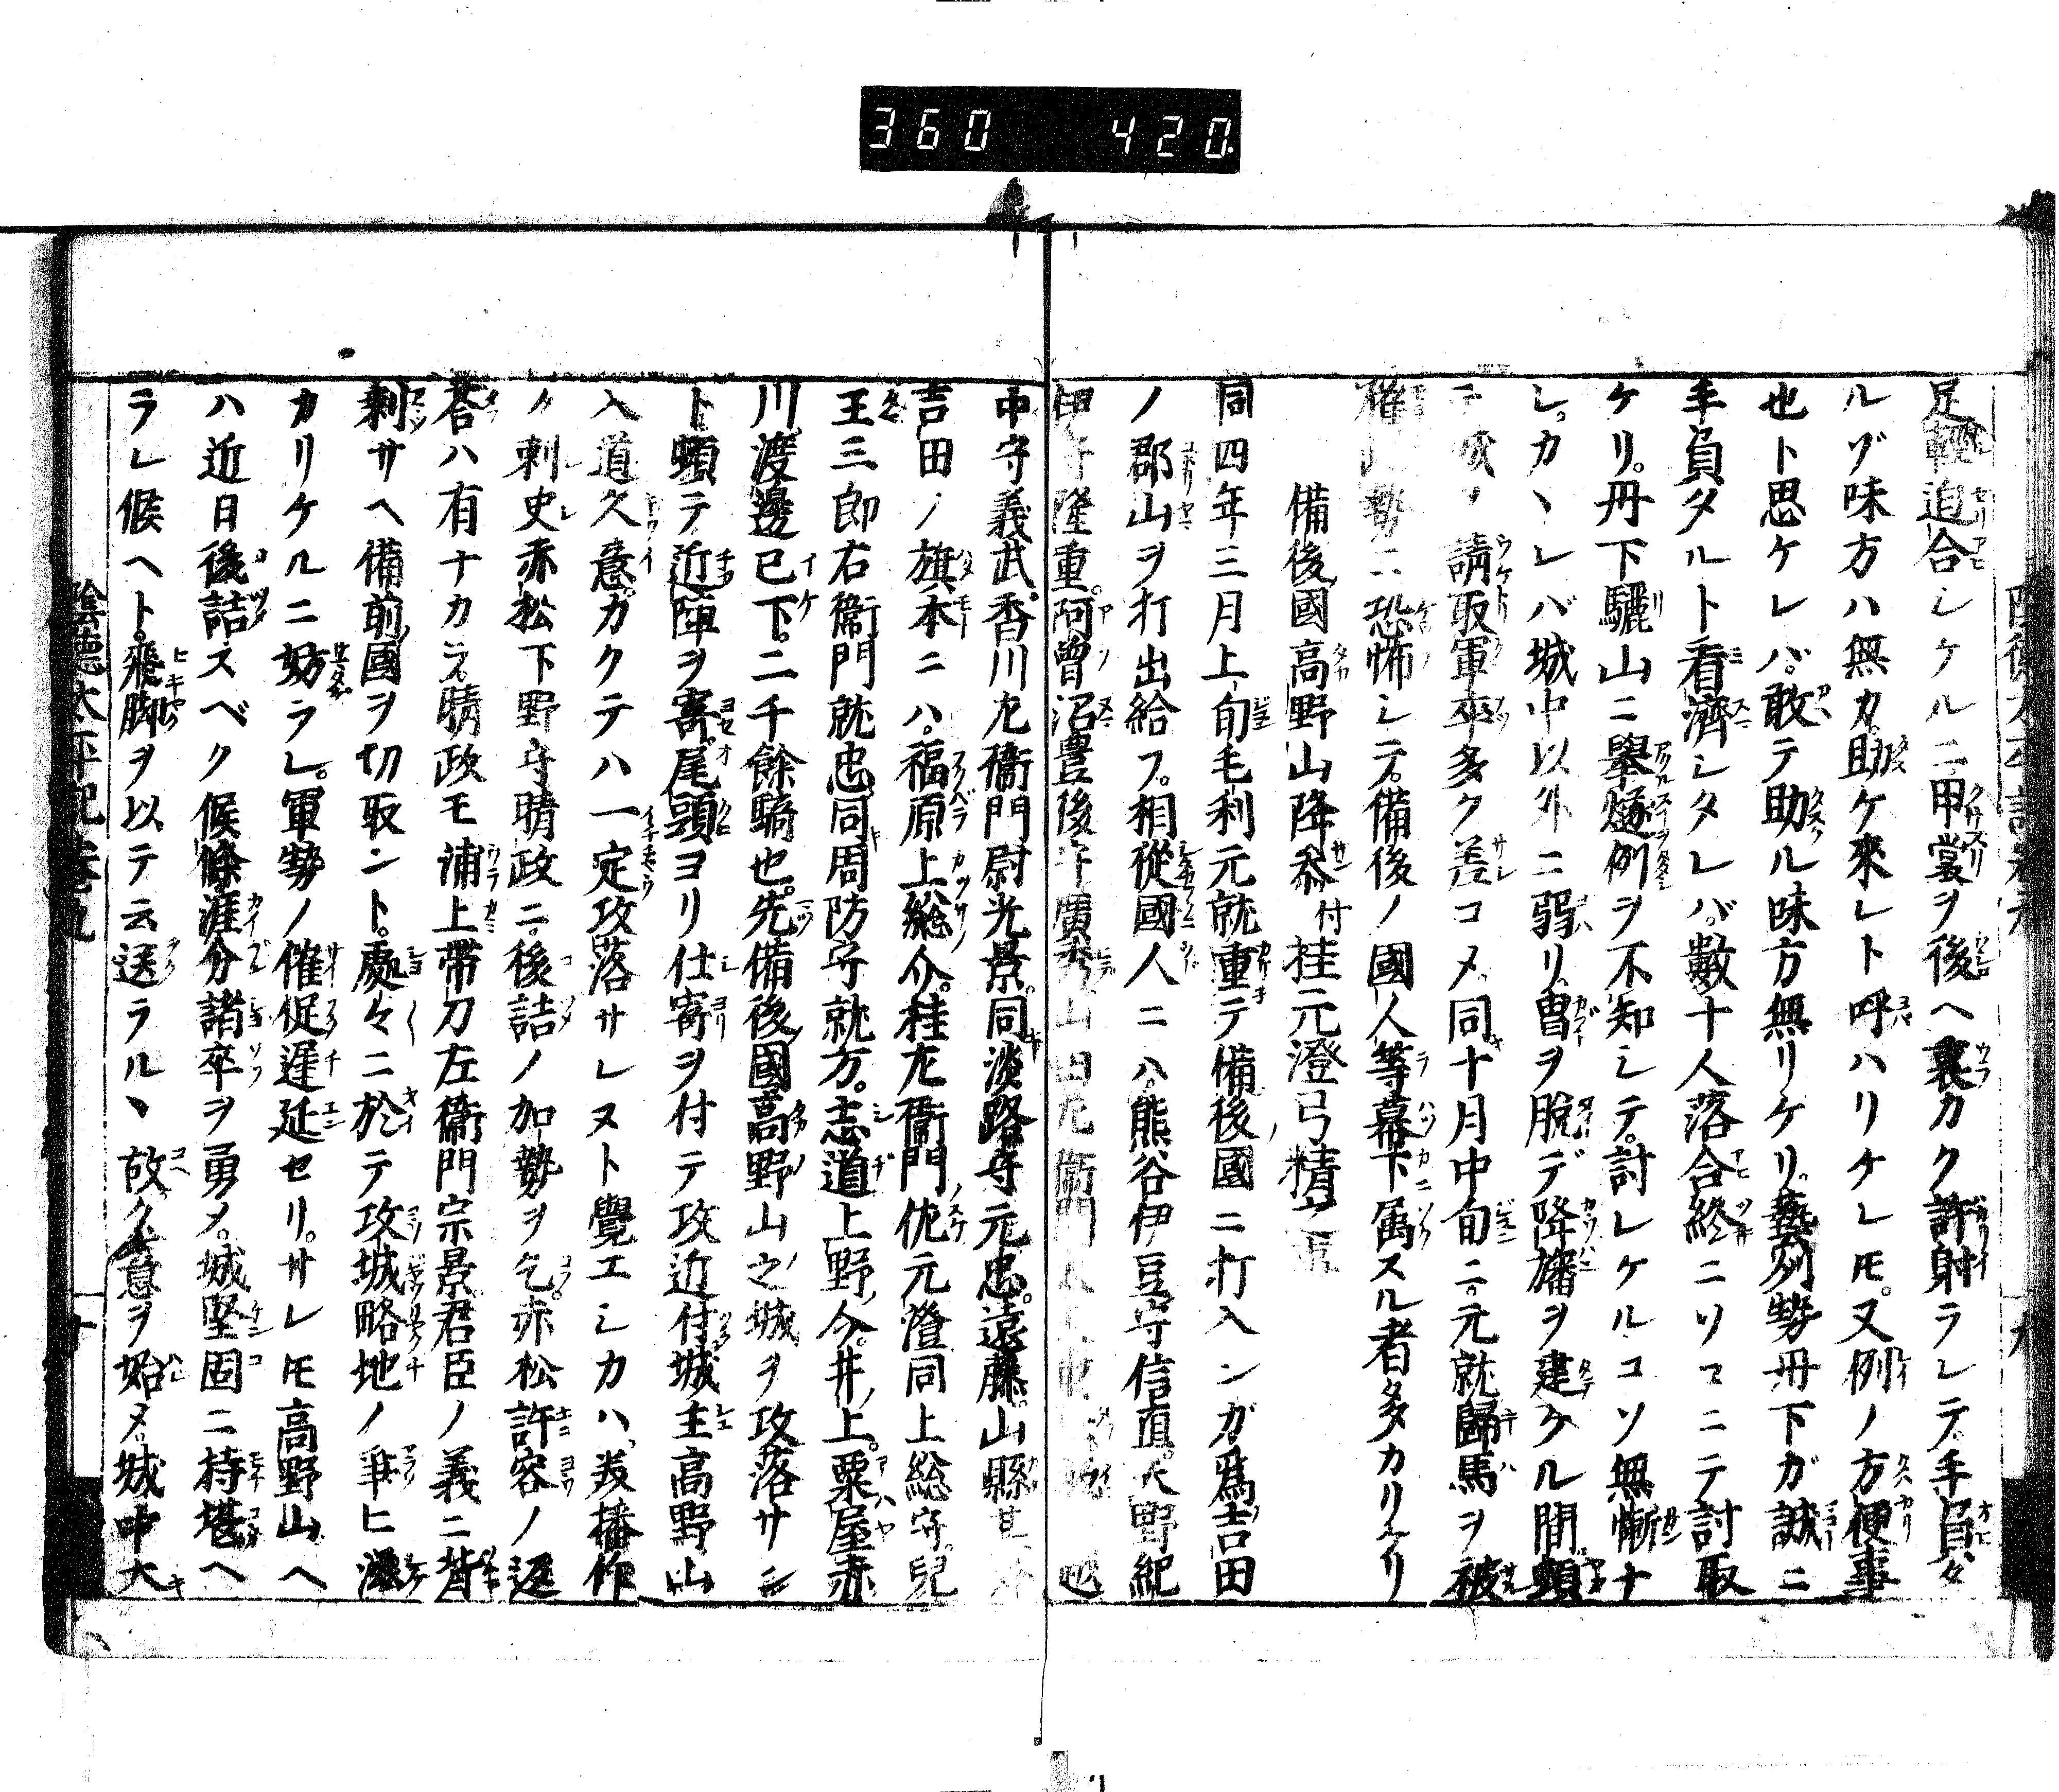 360 420
足輕迫合シケルニ甲裳ヲ後ヘ裏カク許射ラレテ手負タ
ルゾ味方ハ無カ助ケ來レト呼ハリケレ𪜈又例ノ方便事
也ト思ケレバ敢テ助ル味方無リケリ藝列勢丹下ガ誠ニ
手負タルト看濟シタレバ數十人落合終ニソコニテ討取
ケリ丹下驪山ニ舉燧例ヲ不知シテ討レケルコソ無慚ナ
レカヽレバ城中以外ニ弱リ冑ヲ脱デ降旛ヲ建ケル間頓
テ城ノ請取軍卒多ク差コメ同十月中旬ニ元就歸馬ヲ被
勢ニ恐怖シテ備後ノ國人等幕下属スル者多カリケリ
備後國高野山降參付桂元澄弓精
同四年三月上旬毛利元就重テ備後國ニ打入ンガ爲吉田
ノ郡山ヲ打出給フ相從國人ニハ熊谷伊豆守信直天野紀
伊守隆重阿曽沼豊後守廣秀
中守義武香川左衞門尉光景同淡路守元忠遠藤山縣
吉田ノ旗本ニハ福原上総介桂左衞門佐元澄同上総守兒
王三郎右衞門就忠同周防守就方志道上野介井上粟屋赤
川渡邊已下二千餘騎也先備後國高野山之城ヲ攻落サン
ト頓テ近陣ヲ寄尾頭ヨリ仕寄ヲ付テ攻近付城主高野山
入道久意カクテハ一定攻落サレヌト覺エシカハ美播作
ノ刺史赤松下野守晴政ニ後詰ノ加勢ヲ乞赤松許容ノ返
答ハ有ナカラ晴政モ浦上帯刀左衞門宗景君臣ノ義ニ背
剰サヘ備前國ヲ切取ント處々ニ於テ攻城略地ノ爭ヒ
カリケルニ妨ラレ軍勢ノ催促遲延セリサレ𪜈高野山ヘ
ハ近日後詰スベク候條涯分諸卒ヲ勇メ城堅固ニ持堪ヘ
ラレ候ヘト飛脚ヲ以テ云送ラルヽ故久意ヲ始メ城中大
陰徳太平記卷九